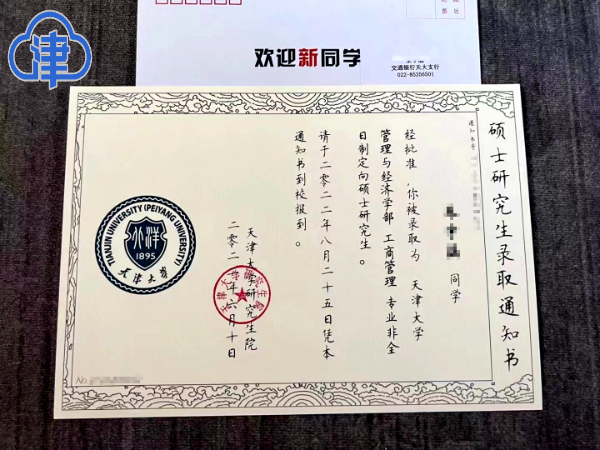 津
邮政编码
欢迎新同学
交通银行天大支行
022-85356501
硕士研究生录取通知书
通知书号
同学
经批准，你被录取为 天津大学
管理与经济学部 工商管理 专业非全
日制定向硕士研究生。
请于二〇二二年八月二十五日凭本
通知书到校报到。
天津大学研究生院
二零二二年六月十日
TIANJIN UNIVERSITY (PEIYANG UNIVERSITY)
北洋
1895
天津大学
No